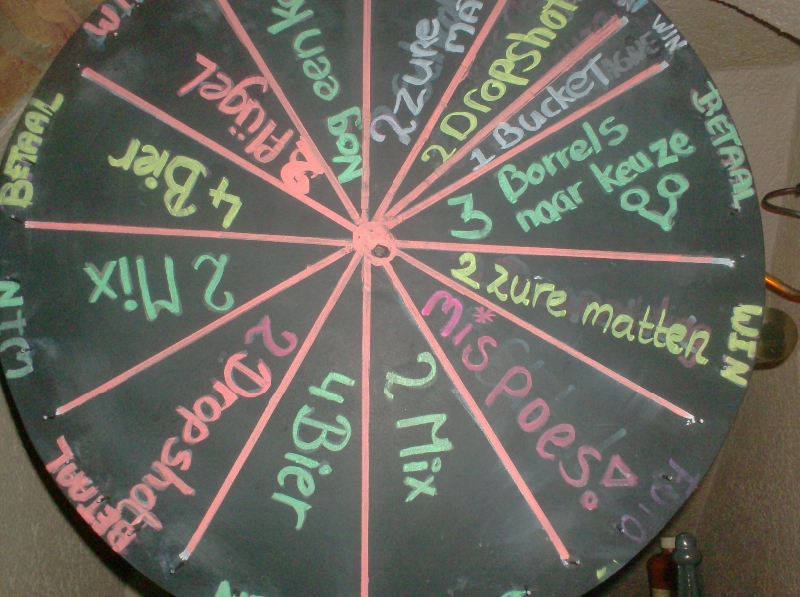 BETAAL
3 Borrels
naar keuze
WIN
2 zure matten
mispoes!
2 Mix
4 Bier
BETAAL
2 Dropshot
2 Mix
BETAAL
4 Bier
3 Flügel
Nog een
2 zure
MA
2 Dropshot
WIN
1 Bucket